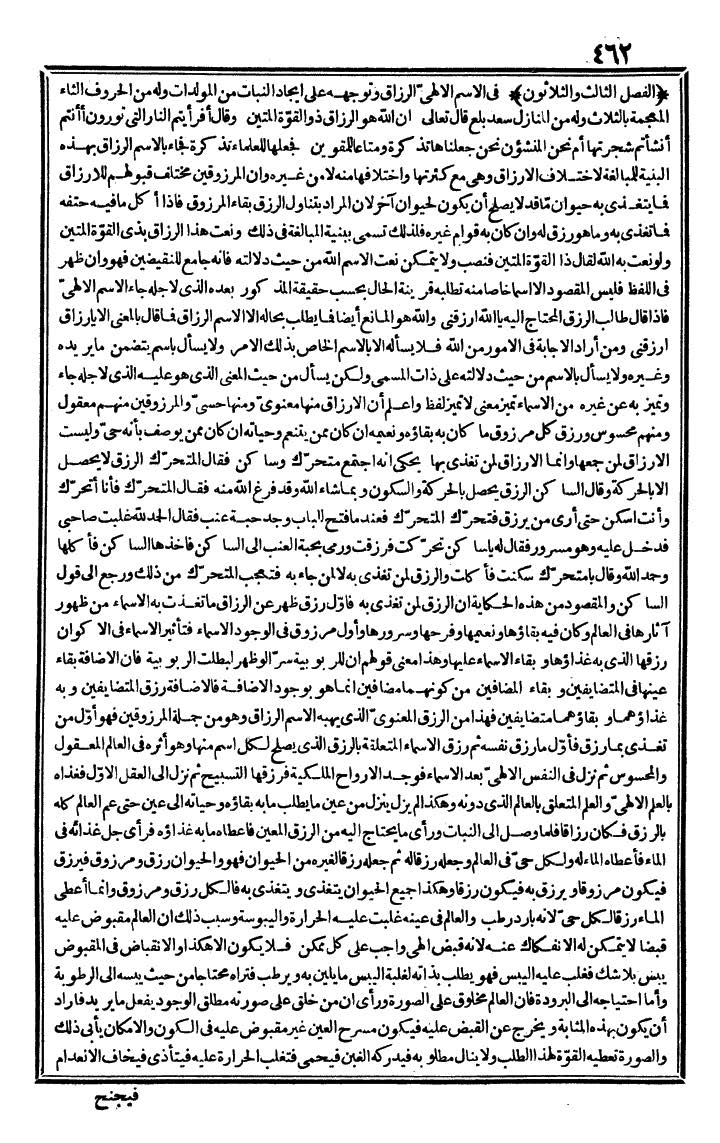 ٤٦٢
﴿الفصل الثالث والثلاثون﴾ فى الاسم الالهىّ الرزاق وتوجهه على ايجاد النبات من المولدات وله من الحروف الثاء
المعجمة بالثلاث وله من المنازل سعد بلع قال تعالى ان الله هو الرزاق ذو القوّة المتين وقال أفرأيتم النار التى تورون أأنتم
أنشأتم شجرتها أم نحن المنشؤن نحن جعلناها تذكرة ومتاعا للمقوين جعلها للعلماء تذكرة فجاء بالاسم الرزاق بهذه
البنية للمبالغة لاختلاف الارزاق وهى مع كثرتها واختلافها منه لا من غيره وان المرزوقين مختلف قبولهم للارزاق
فما يتغذى به حيوان مّا قد لا يصلح أن يكون لحيوان آخر لان المراد بتناول الرزق بقاء المرزوق فاذا أكل ما فيه حتفه
فما تغذى به وما هو رزق له وان كان به قوام غيره فلذلك تسمى ببنية المبالغة فى ذلك ونعت هذا الرزاق بذى القوّة المتين
ولو نعت به الله لقال ذا القوّة المتين فنصب ولا يتمكن نعت الاسم الله من حيث دلالته فانه جامع للنقيضين فهو وان ظهر
فى اللفظ فليس المقصود الا اسما خاصا منه تطلبه قرينة الحال بحسب حقيقة المذكور بعده الذى لاجله جاء الاسم الالهىّ
فاذا قال طالب الرزق المحتاج اليه يا الله ارزقنى والله هو المانع أيضا فما يطلب بحاله الا الاسم الرزاق فما قال بالمعنى الا يا رزاق
ارزقنى ومن أراد الاجابة فى الامور من الله فلا يسأله الا بالاسم الخاص بذلك الامر ولا يسأل باسم يتضمن ما يريده
وغيره ولا يسأل بالاسم من حيث دلالته على ذات المسمى ولكن يسأل من حيث المعنى الذى هو عليه الذى لاجله جاء
وتميز به عن غيره من الاسماء تميز معنى لا تميز لفظ واعلم أن الارزاق منها معنوىّ ومنها حسىّ والمرزوقين منهم معقول
ومنهم محسوس ورزق كل مرزوق ما كان به بقاؤه ونعيمه ان كان ممن يتنعم وحياته ان كان ممن يوصف بأنه حىّ وليست
الارزاق لمن جمعها وانما الارزاق لمن تغذى بها يحكى انه اجتمع متحرّك وساكن فقال المتحرّك الرزق لا يحصل
الا بالحركة وقال الساكن الرزق يحصل بالحركة والسكون وبما شاء الله وقد فرغ الله منه فقال المتحرّك فأنا أتحرّك
وأنت اسكن حتى أرى من يرزق فتحرّك المتحرّك فعند ما فتح الباب وجد حبة عنب فقال الحمد لله غلبت صاحبى
فدخل عليه وهو مسرور فقال له يا ساكن تحرّكت فرزقت ورمى بحبة العنب الى الساكن فأخذها الساكن فأكلها
وحمد الله وقال يا متحرّك سكنت فأكلت والرزق لمن تغذى به لا لمن جاء به فتعجب المتحرّك من ذلك ورجع الى قول
الساكن والمقصود من هذه الحكاية ان الرزق لمن تغذى به فأوّل رزق ظهر عن الرزاق ما تغذت به الاسماء من ظهور
آثارها فى العالم وكان فيه بقاؤها ونعيمها وفرحها وسرورها وأول مرزوق فى الوجود الاسماء فتأثير الاسماء فى الاكوان
رزقها الذى به غذاؤها وبقاء الاسماء عليها وهذا معنى قولهم ان للربوبية سرّا لو ظهر لبطلت الربوبية فان الاضافة بقاء
عينها فى المتضايفين وبقاء المضافين من كونهما مضافين انما هو بوجود الاضافة فالاضافة رزق المتضايفين وبه
غذاؤهما وبقاؤهما متضايفين فهذا من الرزق المعنوىّ الذى يهبه الاسم الرزاق وهو من جملة المرزوقين فهو أوّل من
تغذى بما رزق فأوّل ما رزق نفسه ثم رزق الاسماء المتعلقة بالرزق الذى يصلح لكل اسم منها وهو أثره فى العالم المعقول
والمحسوس ثم نزل فى النفس الالهىّ بعد الاسماء فوجد الارواح الملكية فرزقها التسبيح ثم نزل الى العقل الاوّل فغذاه
بالعلم الالهىّ والعلم المتعلق بالعالم الذى دونه وهكذا لم يزل ينزل من عين ما يطلب ما به بقاؤه وحياته الى عين حتى عم العالم كله
بالرزق فكان رزاقا فلما وصل الى النبات ورأى ما يحتاج اليه من الرزق المعين فاعطاه ما به غذاؤه فرأى جل غذائه فى
الماء فأعطاه الماء له ولكل حىّ فى العالم وجعله رزقا له ثم جعله رزقا لغيره من الحيوان فهو والحيوان رزق ومرزوق فيرزق
فيكون مرزوقا ويرزق به فيكون رزقا وهكذا جميع الحيوان يتغذى ويتغذى به فالكل رزق ومرزوق وانما أعطى
الماء رزقا لكل حىّ لانه بارد رطب والعالم فى عينه غلبت عليه الحرارة واليبوسة وسبب ذلك ان العالم مقبوض عليه
قبضا لا يتمكن له الانفكاك عنه لانه قبض الهى واجب على كل ممكن فلا يكون الا هكذا والانقباض فى المقبوض
يبس بلا شك فغلب عليه اليبس فهو يطلب بذاته لغلبة اليبس ما يلين به ويرطب فتراه محتاجا من حيث يبسه الى الرطوبة
وأما احتياجه الى البرودة فان العالم مخلوق على الصورة ورأى ان من خلق على صورته مطلق الوجود يفعل ما يريد فأراد
أن يكون بهذه المثابة ويخرج عن القبض عليه فيكون مسرح العين غير مقبوض عليه فى الكون والامكان يأبى ذلك
والصورة تعطيه القوّة لهذا الطلب ولا ينال مطلوبه فيدركه الغبن فيحمى فتغلب الحرارة عليه فيتأذى فيخاف الانعدام
فيجنح